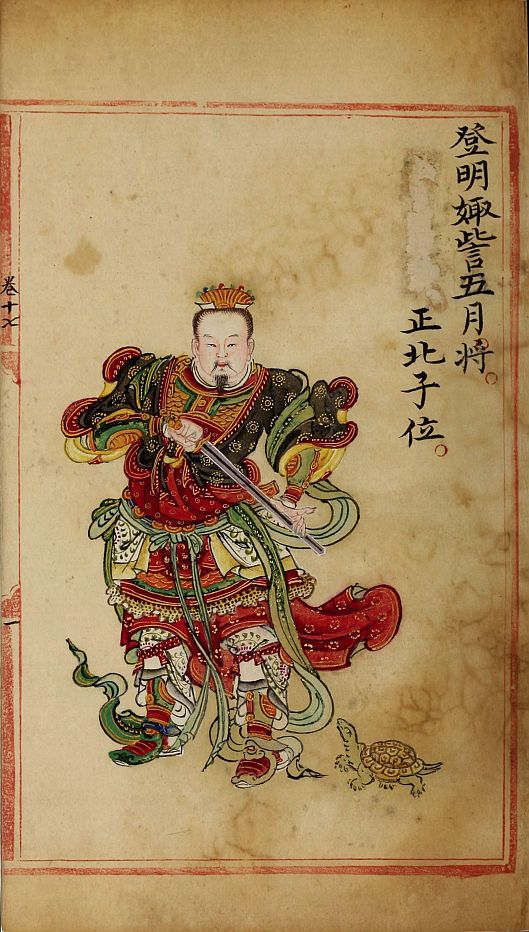 登明娵訾五月将
正北子位
卷十七